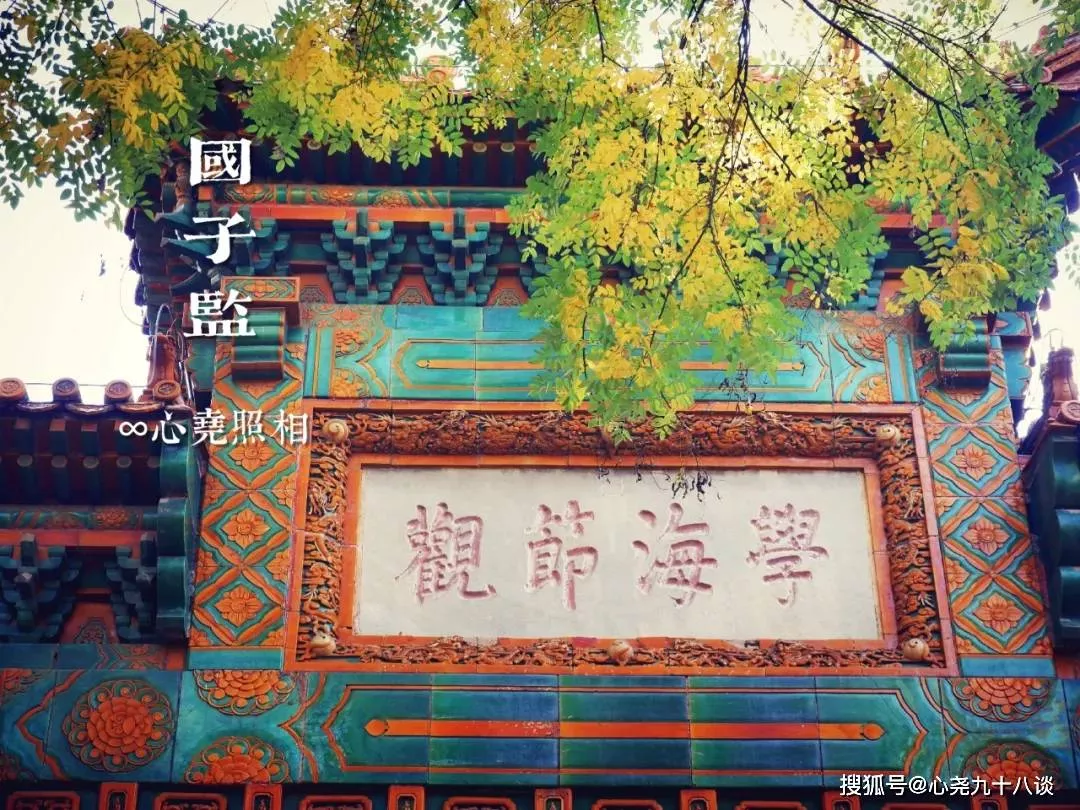 國子監
∞心堯照相
學海節觀
搜狐号@心尧九十八谈